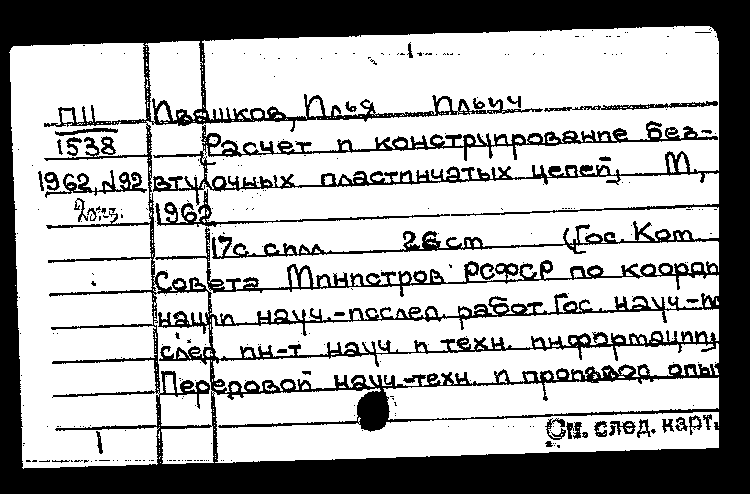 П11 Ивашков, Илья Ильич
1538 Расчет и конструирование без-
1962, №92 втулочных пластинчатых цепей, М.,
2 экз. 1962
17 с. с илл. 26 см (Гос. Ком
Совета Министров РСФСР по коорди
нации науч.-исслед. работ. Гос. науч.-и
след. ин-т науч. и техн. информации,
Передовой науч.-техн. и производ. опыт
См. след. карт.